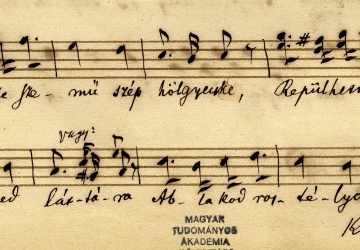 sze - mü szép hölgyecske, Repülhess
vagy:
ed lát-tá-ra Ab-lakod ros-té-lyá
MAGYAR
TUDOMÁNYOS
AKADÉMIA